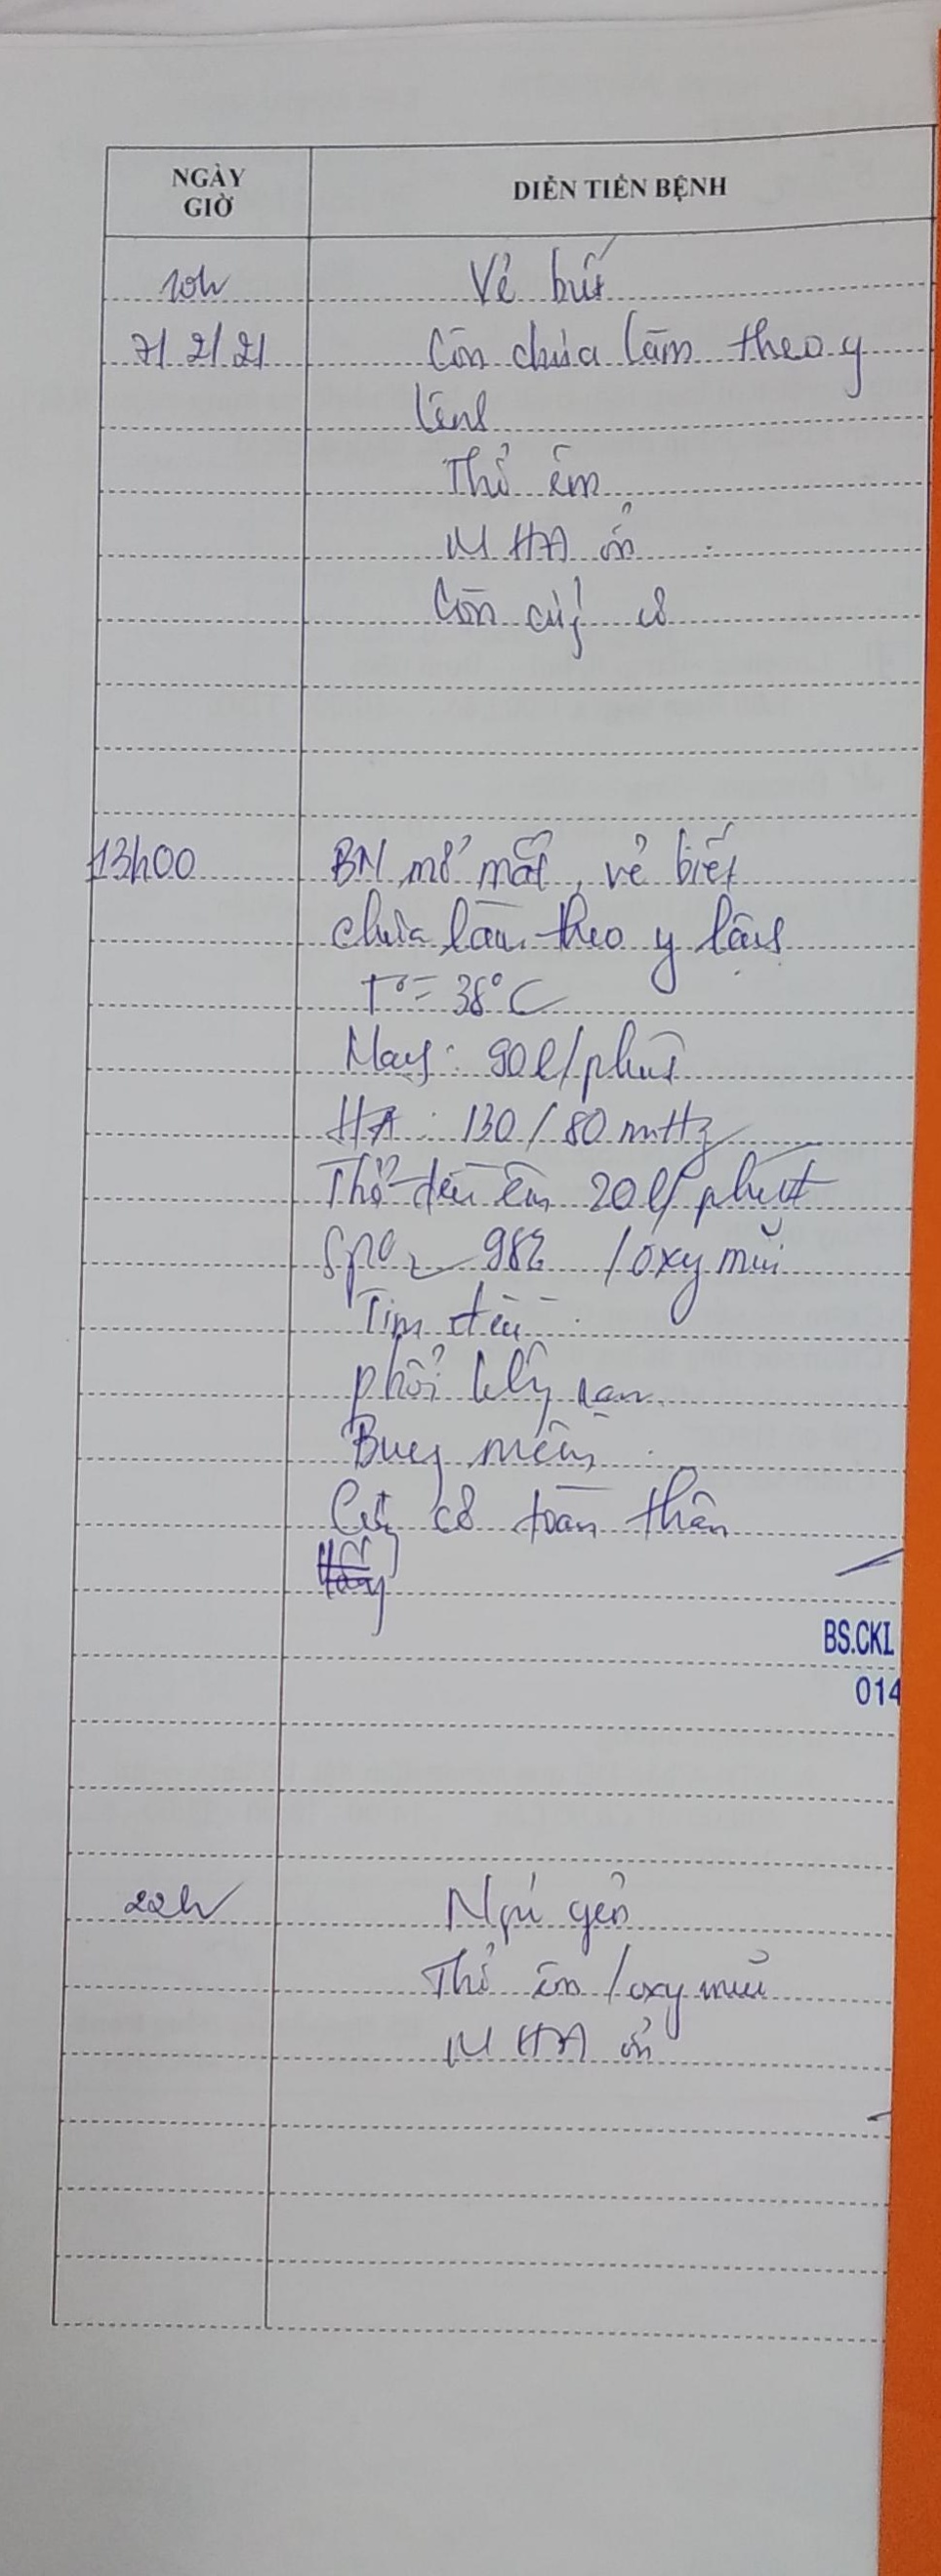 NGÀY
GIỜ
DIỄN TIẾN BỆNH
10h
Vẻ biết
7/2/21
Còn chưa làm theo y
lệnh
Thở êm
M HA ổn
Còn cứng cơ
13h00
BN mở mắt, vẻ biết
chưa làm theo y lệnh
T° = 38°C
Mạch: 90 l/phút
HA: 130/80 mmHg
Thở đều êm 20 l/phút
SpO2 98% /oxy mũi
Tim đều
phổi không ran
Bụng mềm
Cứng cơ toàn thân
BS.CKI
014
22h
Ngủ yên
Thở êm /oxy mũi
M HA ổn